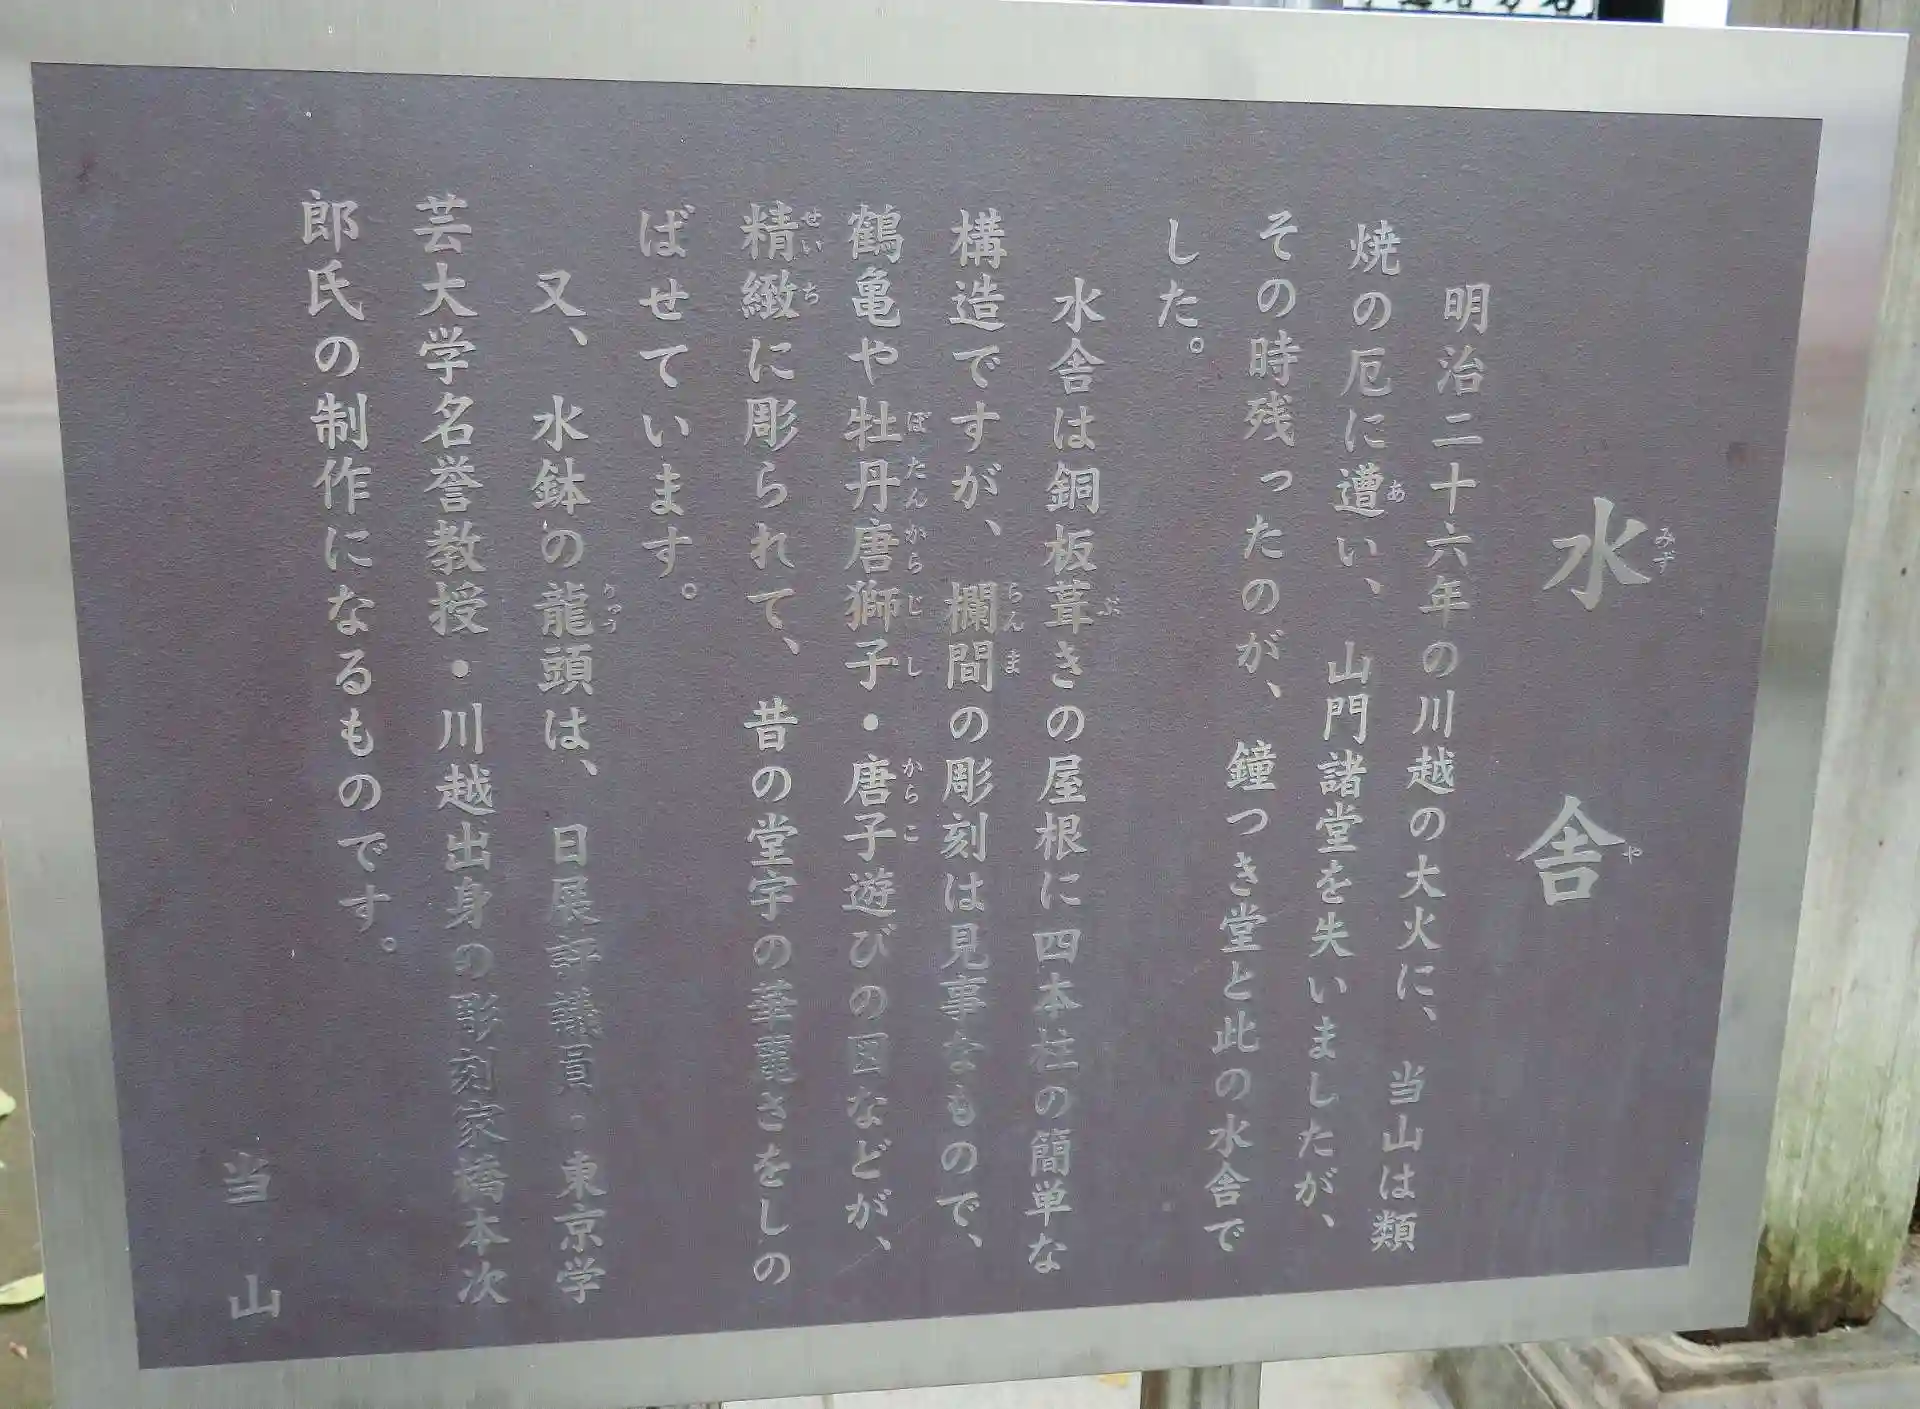 水舎
明治二十六年の川越の大火に、当山は類
焼の厄に遭い、山門諸堂を失いましたが、
その時残ったのが、鐘つき堂と此の水舎で
した。
水舎は銅板葺きの屋根に四本柱の簡単な
構造ですが、欄間の彫刻は見事なもので、
鶴亀や牡丹唐獅子・唐子遊びの図などが、
精緻に彫られて、昔の堂宇の華麗さをしの
ばせています。
又、水鉢の龍頭は、日展評議員・東京学
芸大学名誉教授・川越出身の彫刻家橋本次
郎氏の制作になるものです。
当山